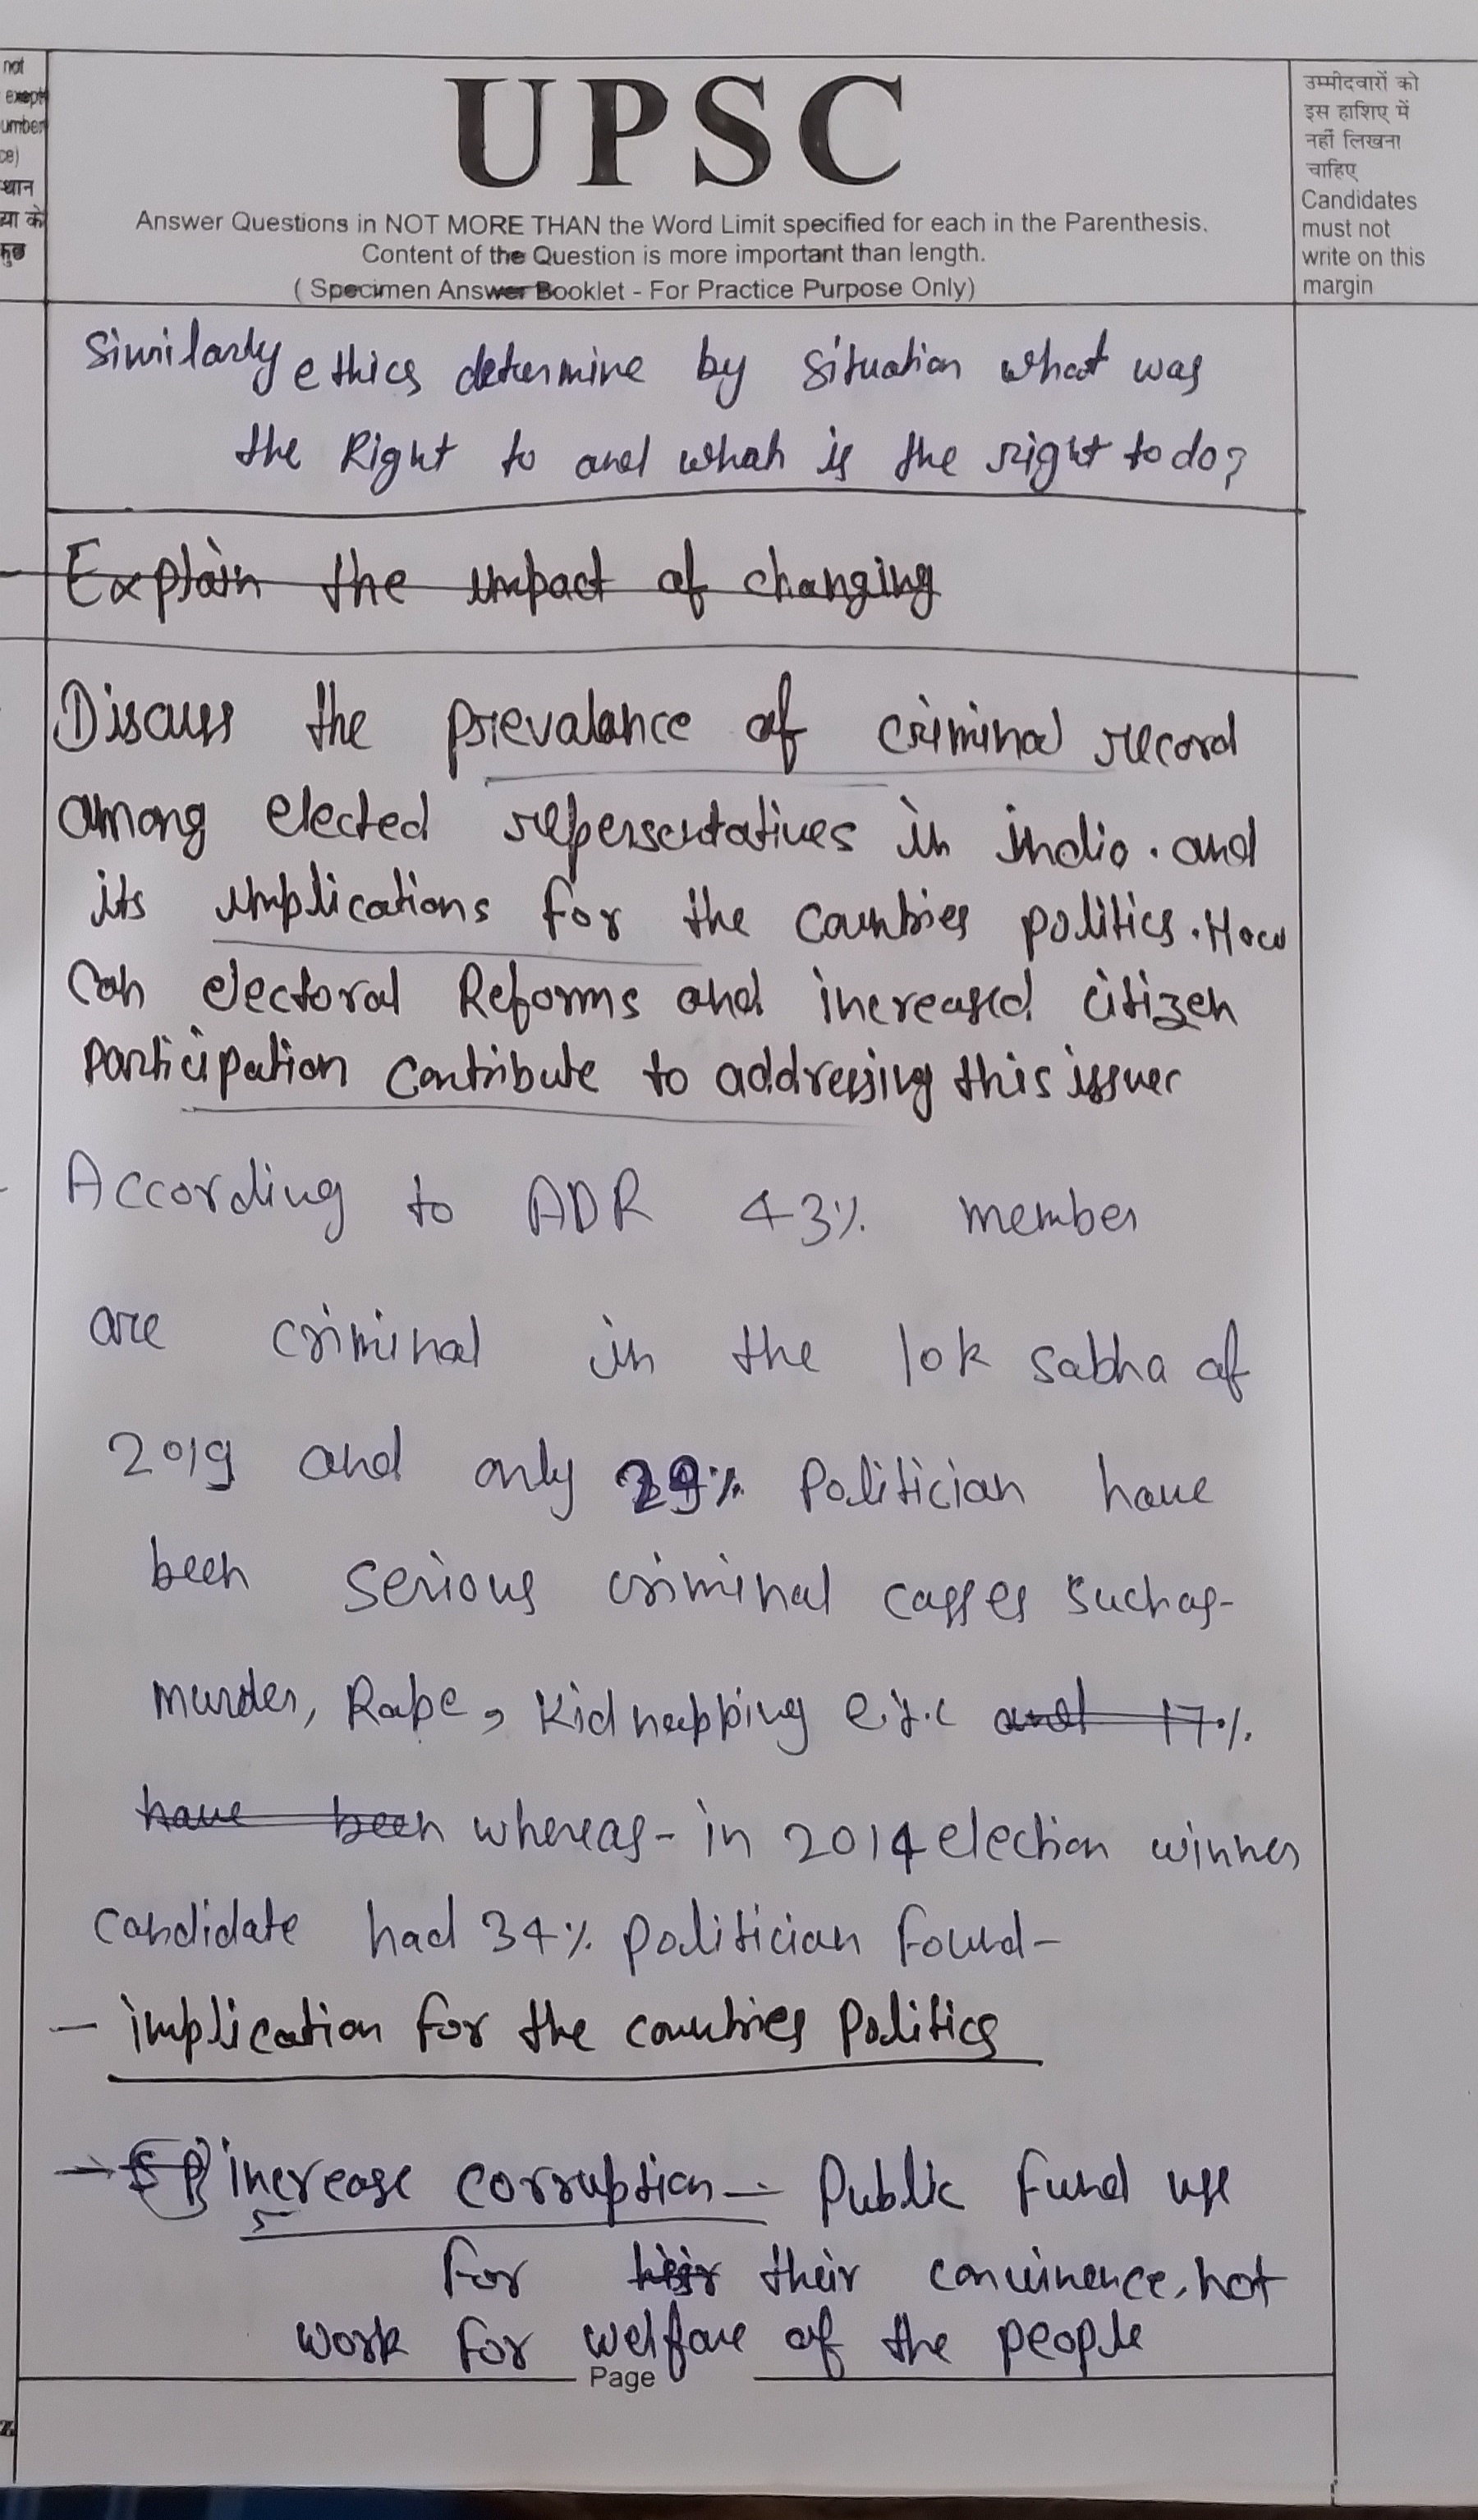 not
except
umber
ce)
थान
या को
कुछ
UPSC
Answer Questions in NOT MORE THAN the Word Limit specified for each in the Parenthesis.
Content of the Question is more important than length.
( Specimen Answer Booklet - For Practice Purpose Only)
उम्मीदवारों को
इस हाशिए में
नहीं लिखना
चाहिए
Candidates
must not
write on this
margin
Similarly ethics determine by situation what was
the Right to and what is the right to do?
Explain the impact of changing
Discuss the prevalance of criminal record
among elected repersentatives in india. and
its implications for the countries politics. How
can electoral Reforms and increased citizen
participation contribute to addressing this issue
According to ADR 43% member
are criminal in the lok sabha of
2019 and only 29% Politician have
been serious criminal casses such as-
murder, Rape, Kidnapping e.t.c and 17%
have been whereas- in 2014 election winner
candidate had 34% politician found-
- implication for the countries Politics
→ increase corruption — Public fund use
for their convinence, not
work for welfare of the people
Page